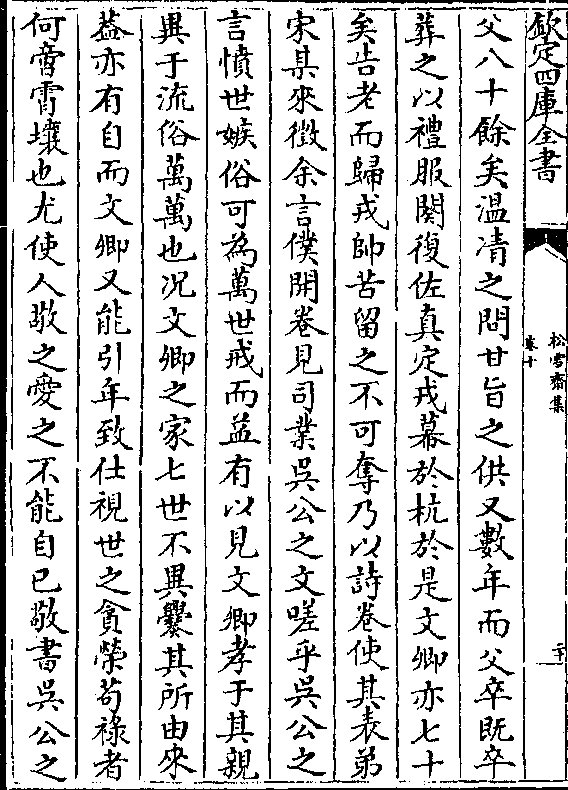 欽定四庫全書
松雪齋集
卷十
二十
父八十餘矣溫凊之問甘旨之供又數年而父卒既卒
葬之以禮服闋復佐真定戎幕於杭於是文卿亦七十
矣告老而歸戎帥苦留之不可奪乃以詩卷使其表弟
宋其來徵余言僕開卷見司業吳公之文嗟乎吳公之
言憤世嫉俗可為萬世戒而益有以見文卿孝于其親
異于流俗萬萬也况文卿之家七世不異爨其所由來
葢亦有自而文卿又能引年致仕視世之貪榮茍祿者
何啻霄壤也尤使人敬之愛之不能自已敬書吳公之